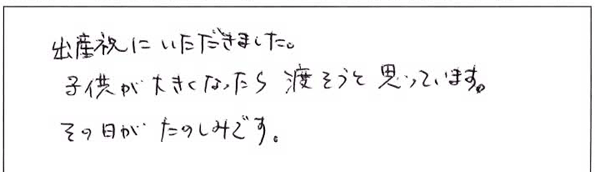 出産祝にいただきました。
子供が大きくなったら渡そうと思っています。
その日がたのしみです。